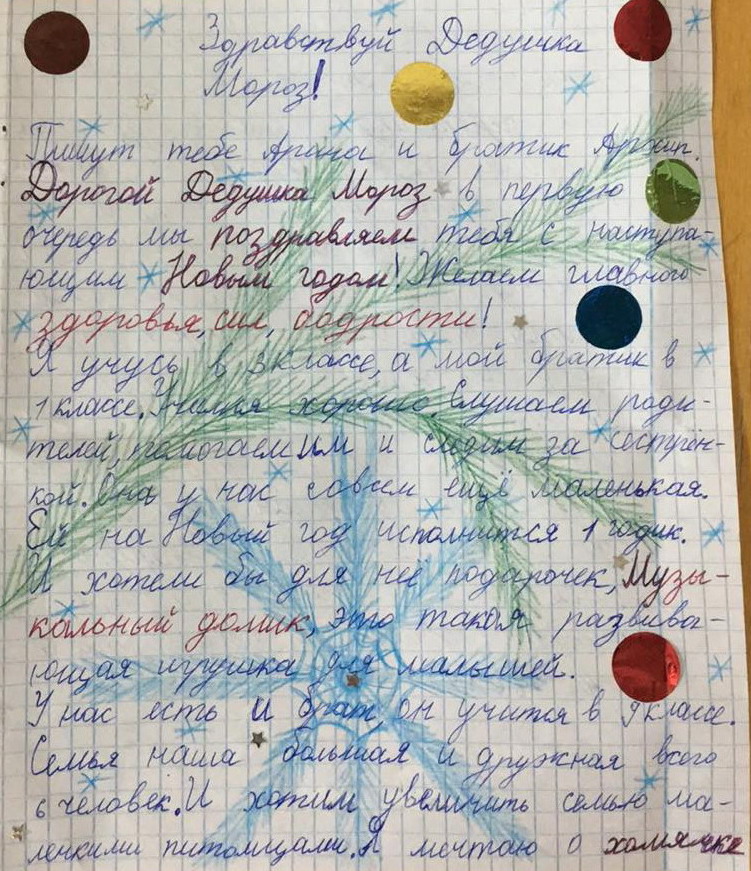 Здравствуй Дедушка
Мороз!
Пишут тебе и братик Архип.
Дорогой Дедушка Мороз в первую
очередь мы поздравляем тебя с наступа-
ющим Новым годом! Желаем главного
здоровья, сил, бодрости!
Я учусь в 3 классе, а мой братик в
1 классе. Учимся хорошо, Слушаем роди-
телей, помогаем им и следим за сестрён-
кой. Она у нас совсем ещё маленькая.
Ей на Новый год исполнится 1 годик.
И хотели бы для неё подарочек, Музы-
кальный домик, это такая развива-
ющая игрушка для малышей.
У нас есть и брат, он учится в 9 классе.
Семья наша большая и дружная всего
6 человек. И хотим увеличить семью ма-
ленкими питомцами. Я мечтаю о хомячке